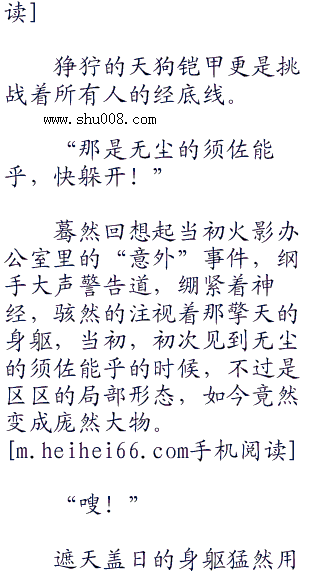 读]
狰狞的天狗铠甲更是挑
战着所有人的经底线。
www.shu008.com
“那是无尘的须佐能
乎，快躲开！”
蓦然回想起当初火影办
公室里的“意外”事件，纲
手大声警告道，绷紧着神
经，骇然的注视着那擎天的
身躯，当初，初次见到无尘
的须佐能乎的时候，不过是
区区的局部形态，如今竟然
变成庞然大物。
[m.heihei66.com手机阅读]
“嗖！”
遮天盖日的身躯猛然用